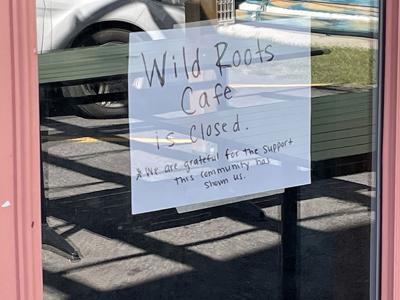 Wild Roots
Cafe
is Closed.
* We are grateful for the support
this community has
shown us.